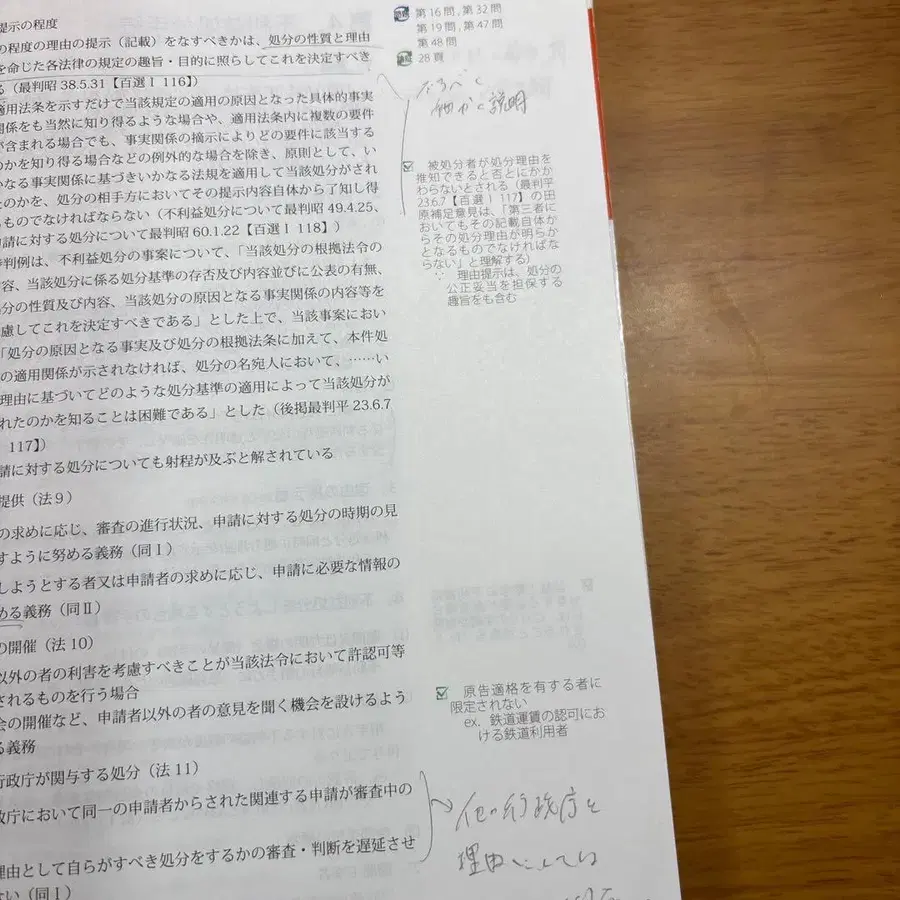 提示の程度
の程度の理由の提示（記載）をなすべきかは、処分の性質と理由
を命じた各法律の規定の趣旨・目的に照らしてこれを決定すべき
る（最判昭 38.5.31【百選Ⅰ 116】）
適用法条を示すだけで当該規定の適用の原因となった具体的事実
関係をも当然に知り得るような場合や、適用法条内に複数の要件
が含まれる場合でも、事実関係の摘示によりどの要件に該当する
のかを知り得る場合などの例外的な場合を除き、原則として、い
かなる事実関係に基づきいかなる法規を適用して当該処分がされ
たのかを、処分の相手方においてその提示内容自体から了知し得
るものでなければならない（不利益処分について最判昭 49.4.25、
申請に対する処分について最判昭 60.1.22【百選Ⅰ 118】）
判例は、不利益処分の事案について、「当該処分の根拠法令の
容、当該処分に係る処分基準の存否及び内容並びに公表の有無、
処分の性質及び内容、当該処分の原因となる事実関係の内容等を
慮してこれを決定すべきである」とした上で、当該事案におい
「処分の原因となる事実及び処分の根拠法条に加えて、本件処
の適用関係が示されなければ、処分の名宛人において、……い
理由に基づいてどのような処分基準の適用によって当該処分が
れたのかを知ることは困難である」とした（後掲最判平 23.6.7
117】）
請に対する処分についても射程が及ぶと解されている
提供（法９）
の求めに応じ、審査の進行状況、申請に対する処分の時期の見
すように努める義務（同Ⅰ）
しようとする者又は申請者の求めに応じ、申請に必要な情報の
める義務（同Ⅱ）
の開催（法 10）
以外の者の利害を考慮すべきことが当該法令において許認可等
されるものを行う場合
会の開催など、申請者以外の者の意見を聞く機会を設けるよう
る義務
行政庁が関与する処分（法 11）
政庁において同一の申請者からされた関連する申請が審査中の
理由として自らがすべき処分をするかの審査・判断を遅延させ
ない（同Ⅰ）
第16問, 第32問
第19問, 第47問
第48問
28頁
なるべく
細かく説明
被処分者が処分理由を
推知できると否とにかか
わらないとされる（最判平
23.6.7【百選Ⅰ 117】の田
原補足意見は、「第三者に
おいてもその記載自体か
らその処分理由が明らか
となるものでなければな
らない」と理解する）
∵ 理由提示は、処分の
公正妥当を担保する
趣旨をも含む
原告適格を有する者に
限定されない
ex. 鉄道運賃の認可にお
ける鉄道利用者
他の行政庁を
理由としては